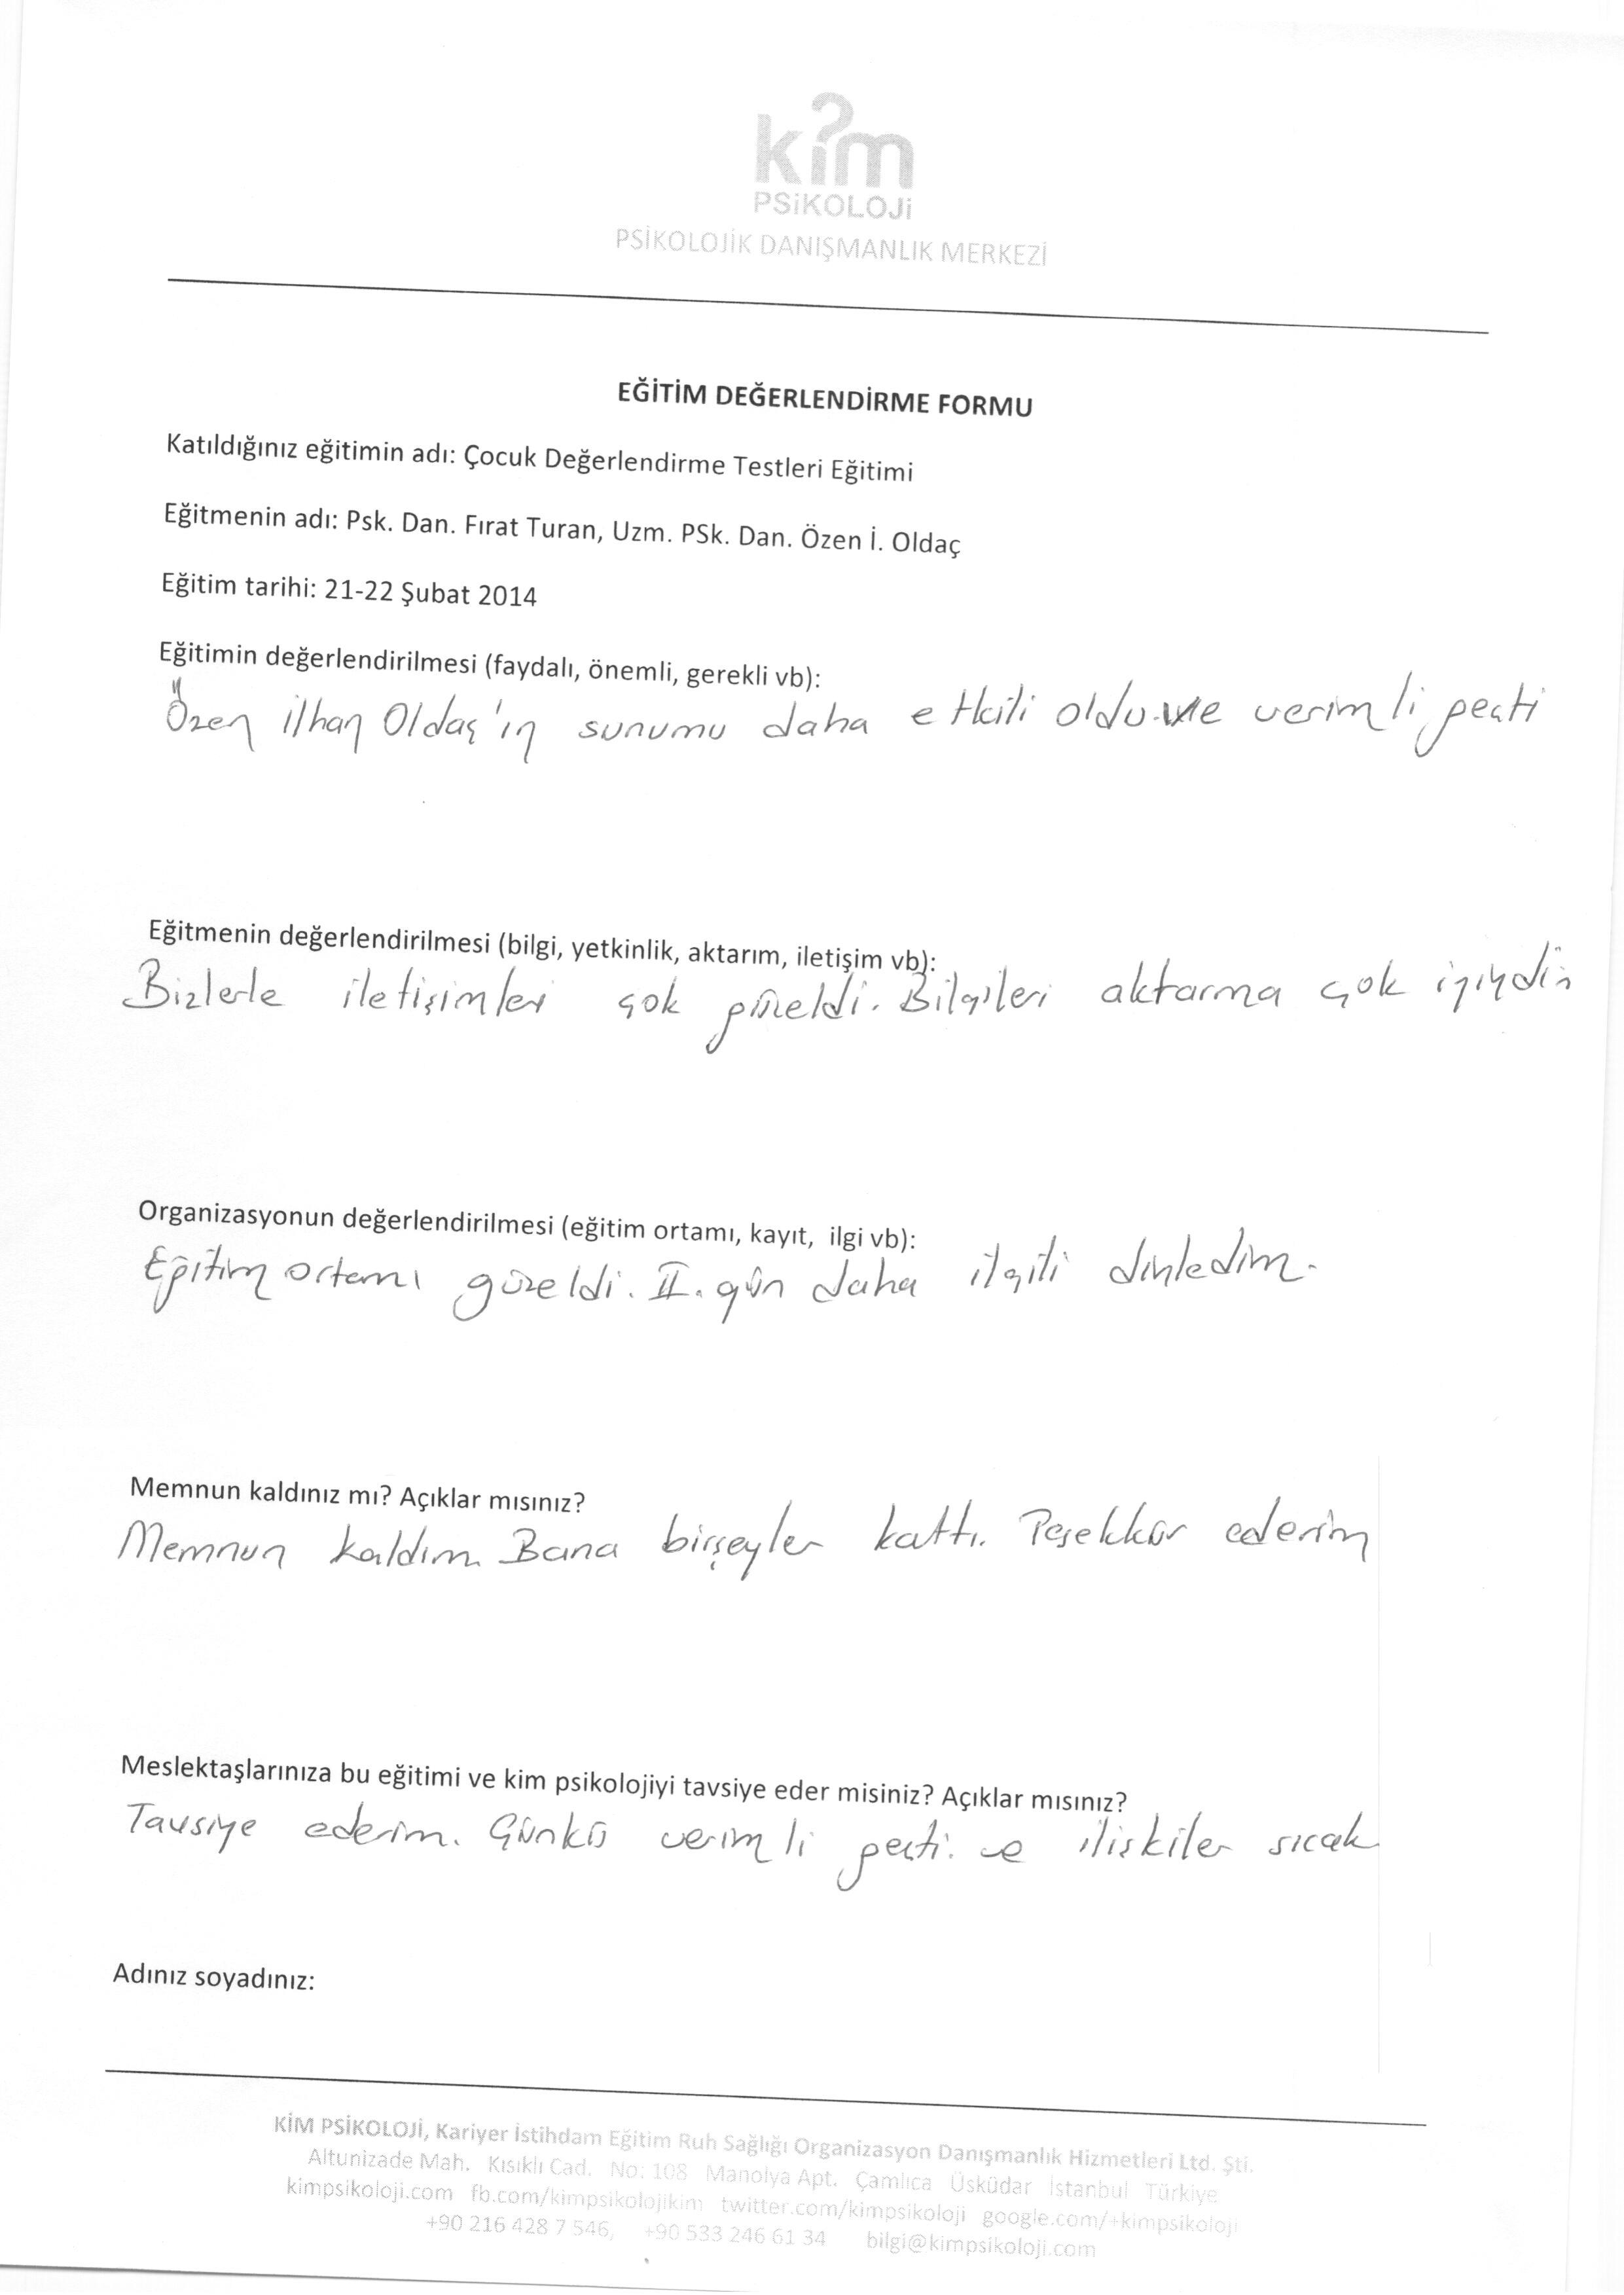 kim
PSiKOLOJi
PSİKOLOJİK DANIŞMANLIK MERKEZİ
EĞİTİM DEĞERLENDİRME FORMU
Katıldığınız eğitimin adı: Çocuk Değerlendirme Testleri Eğitimi
Eğitmenin adı: Psk. Dan. Fırat Turan, Uzm. PSk. Dan. Özen İ. Oldaç
Eğitim tarihi: 21-22 Şubat 2014
Eğitimin değerlendirilmesi (faydalı, önemli, gerekli vb):
Özen ilhan Oldaç'ın sunumu daha etkili oldu ve verimli geçti
Eğitmenin değerlendirilmesi (bilgi, yetkinlik, aktarım, iletişim vb):
Bizlerle iletişimleri çok güzeldi. Bilgileri aktarma çok iyiydi
Organizasyonun değerlendirilmesi (eğitim ortamı, kayıt, ilgi vb):
Eğitim ortamı güzeldi. II. gün daha ilgili dinledim.
Memnun kaldınız mı? Açıklar mısınız?
Memnun kaldım. Bana birşeyler kattı. Teşekkür ederim
Meslektaşlarınıza bu eğitimi ve kim psikolojiyi tavsiye eder misiniz? Açıklar mısınız?
Tavsiye ederim. Çünkü verimli geçti. ve ilişkiler sıcak
Adınız soyadınız:
KİM PSİKOLOJİ, Kariyer İstihdam Eğitim Ruh Sağlığı Organizasyon Danışmanlık Hizmetleri Ltd. Şti.
Altunizade Mah. Kısıklı Cad. No: 108 Manolya Apt. Çamlıca Üsküdar İstanbul Türkiye
kimpsikoloji.com fb.com/kimpsikolojikim twitter.com/kimpsikoloji google.com/+kimpsikoloji
+90 216 428 7 546, +90 533 246 61 34 bilgi@kimpsikoloji.com